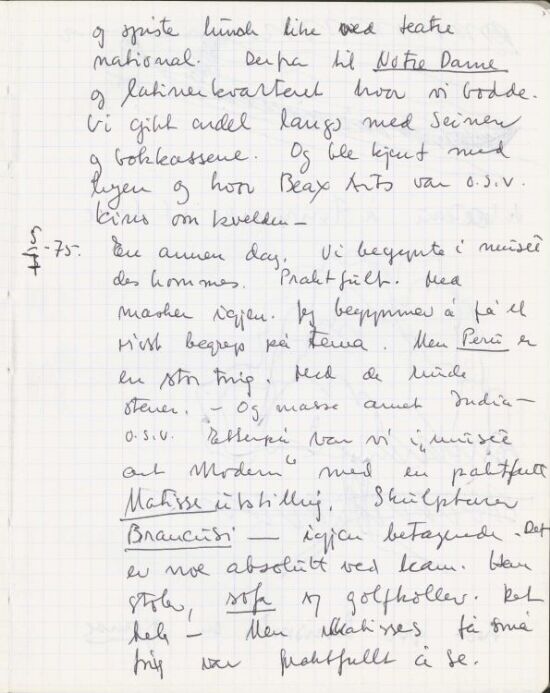 og spiste lunch like ved teatre
national. Derpå til Notre Dame
og latinerkvarteret hvor vi bodde.
Vi gikk endel langs med Seinen
og bokkassene. Og ble kjent med
byen og hvor Beax Arts var o.s.v.
kino om kvelden –
5/7-75. En annen dag. Vi begynte i museé
des hommes. Praktfullt. Med
masker igjen. Jeg begynner å få et
visst begrep på tema. Men Perú er
en stor ting. Med de runde
stener. – Og masse annet India –
o.s.v. Etterpå var vi i "museé
art Modern" med en praktfull
Matisse utstilling. Skulpturer
Brancusi — igjen betagende. Det
er noe absolutt ved ham. Hen
stoler, sofa og golfkøller. Det
hele – Men Matisses få små
ting var praktfullt å se.